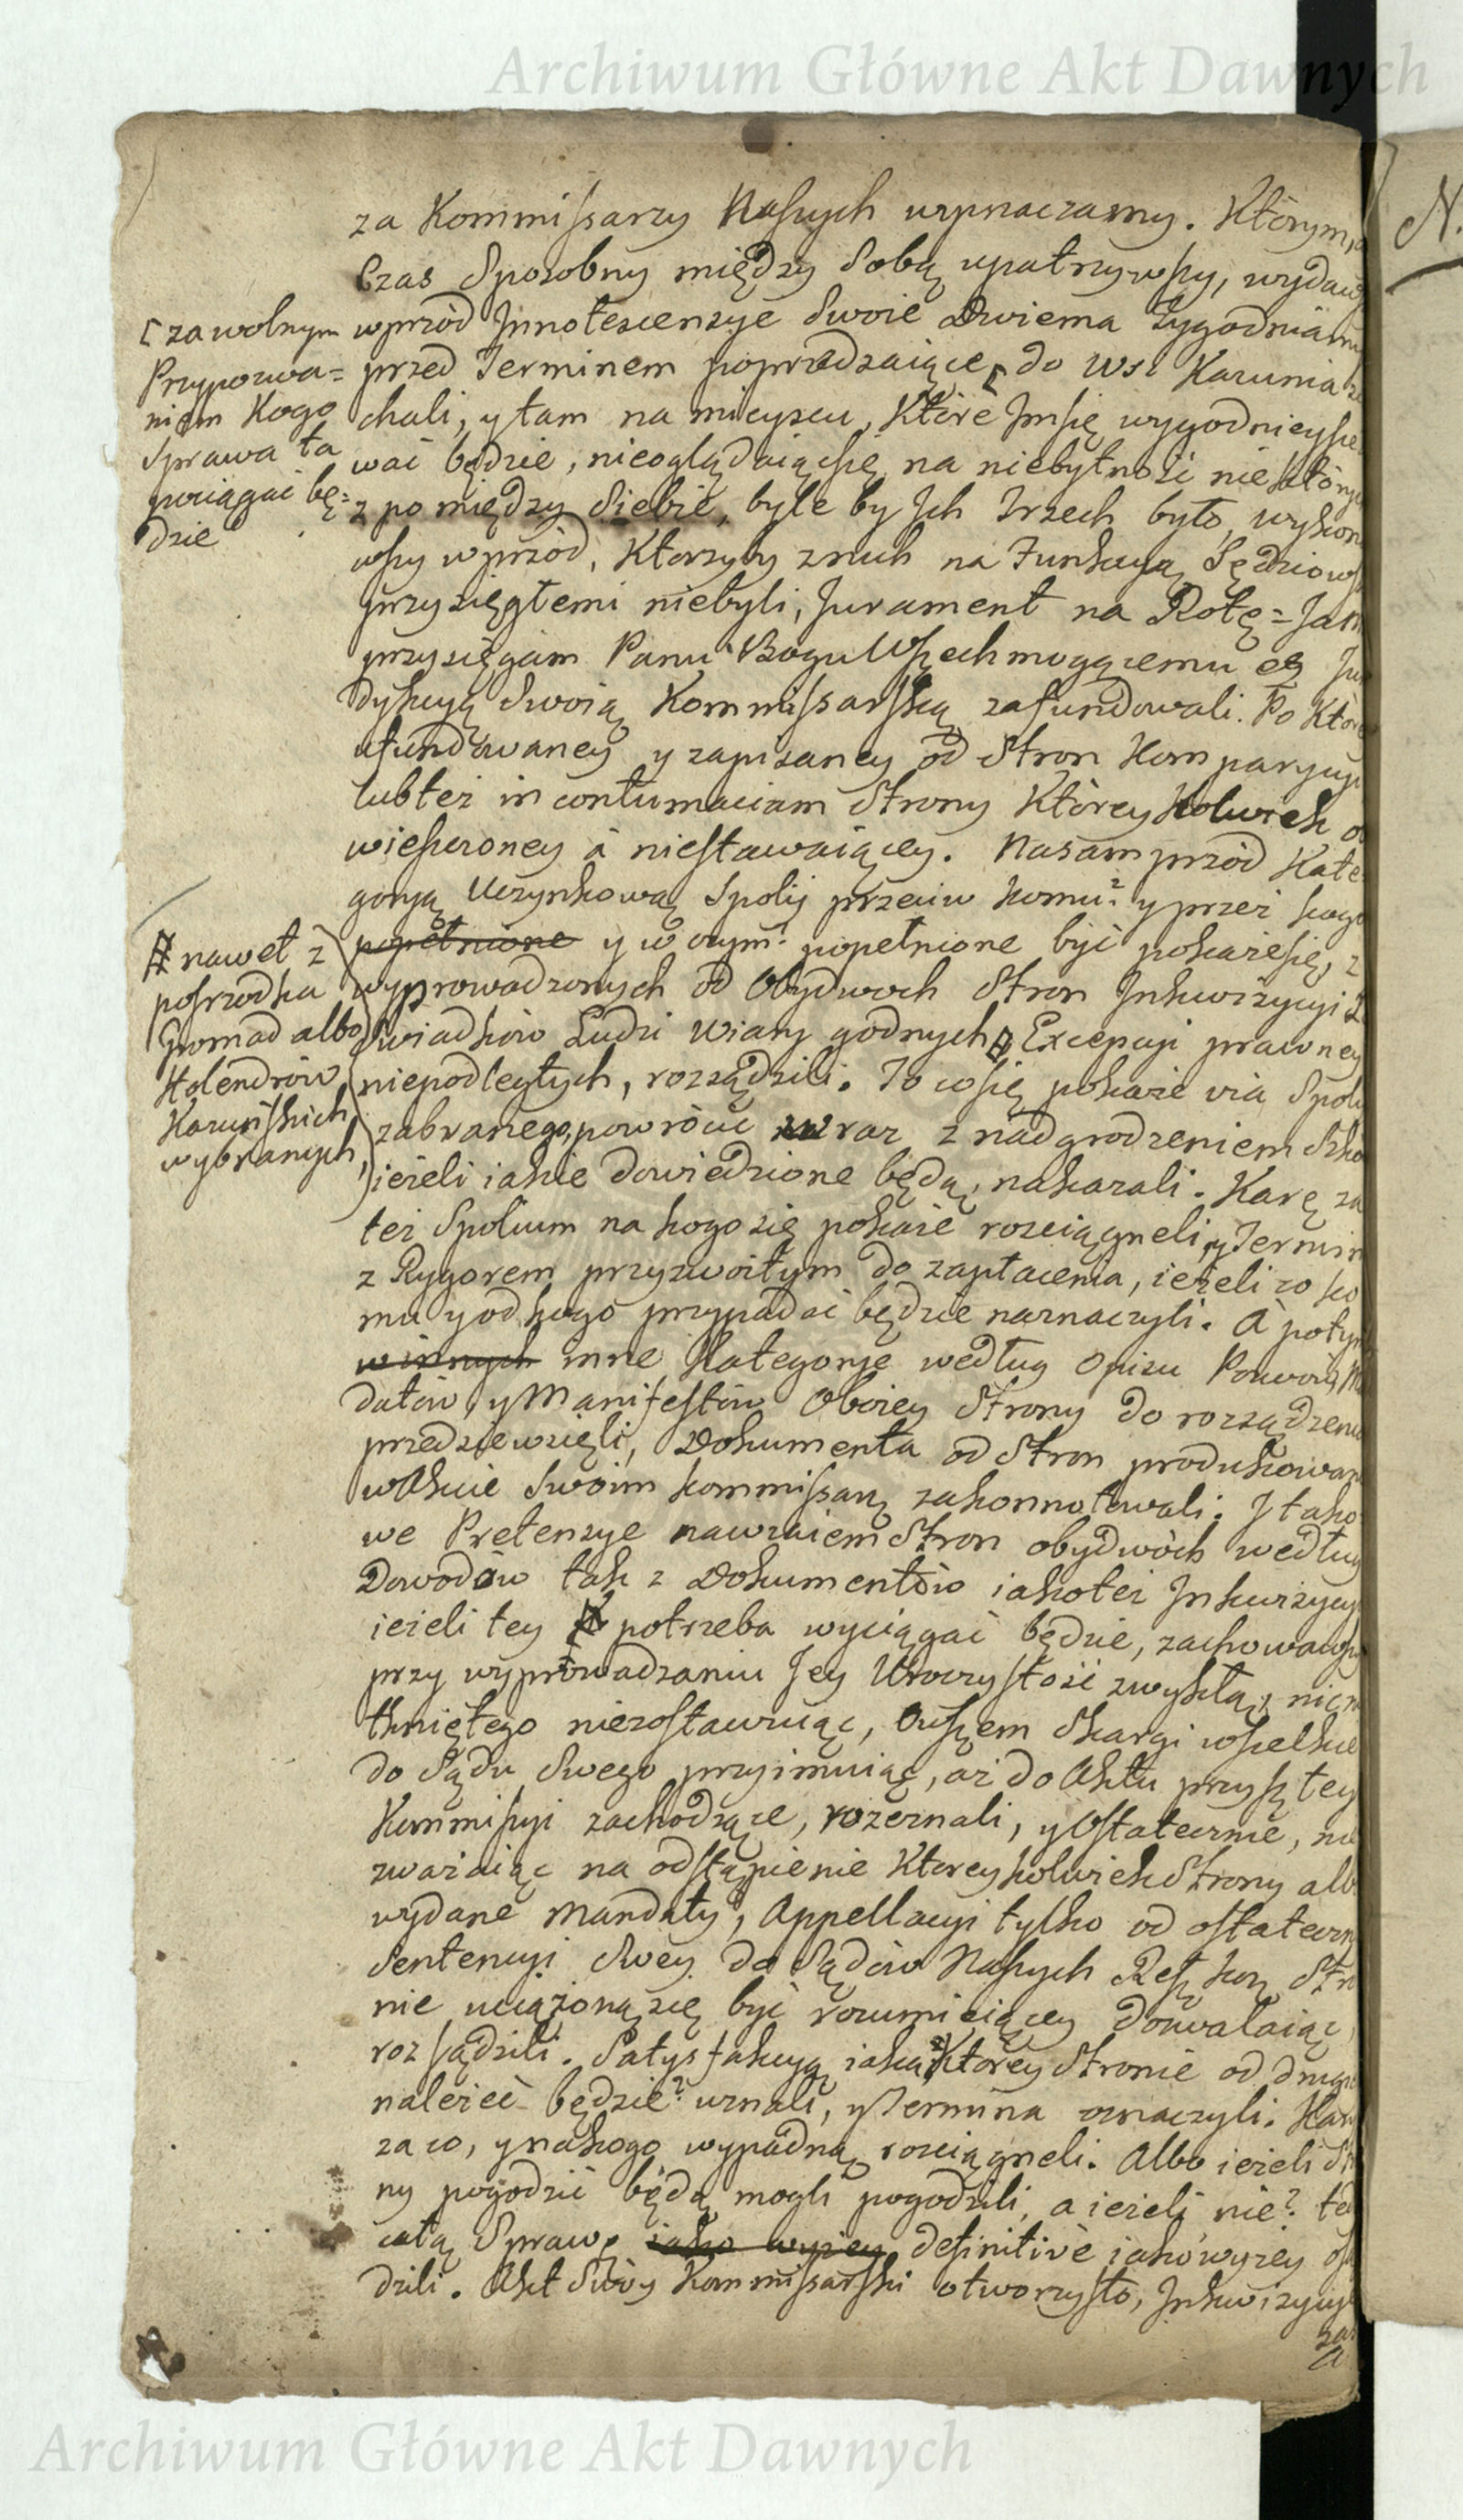 Archiwum Główne Akt Dawnych
za Kommissarzy Naszych wyznaczamy. Którym
Czas Sposobny między Sobą upatrzywszy, wydaw
wprzód Innotescensye Swoie Dwiema Tygodniamy
przed Terminem poprzedzaiące, do Wsi Kazunia
chali, y tam na mieyscu, Które Imsię wygodnieysze
wać będzie, nieoglądaiącsię na niebytność niektóry
z pomiędzy Siebie, byle by Ich Trzech było, wykon
wszy wprzód, Ktorzyby znich na Funkcyą Sędziowsk
przysięgłemi niebyli, Jurament na Rotę = Ja
przysięgam Panu Bogu Wszechmogącemu
dykcyą Swoią Kommissarską zafundowali. Po Który
ufundowaney y zapisaney od Stron Komparycyi
lubteż in contumaciam Strony Którey Kolwiek
wieszczoney á niestawaiącey. Nasamprzód Kate
goryą Uczynkową Spolij przeciw komu? y przez kogo
popełnione y wczym? popełnione być pokażesię, z
wyprowadzonych od Obydwoch Stron Inkwizycyi
Swiadków Ludzi Wiary godnych Excepcyi prawney
niepodległych, rozsądzili. To cosię pokaże via Spoly
zabranego, powrócić wraz z nadgrodzeniem Szkó
ieżeli iakie dowiedzione będą, nakazali. Karę za
też Spolium na kogo się pokaże rościągneli, y Termin
z Rygorem przyzwoitym do zapłacenia, ieżeli co ko
mu y od kogo przypadać będzie naznaczyli. A potym
winnych inne Kategorye według Opisu Pozwów
datów y Manifestów Oboiey Strony do rozsądzeni
przedsiewzięli, Dokumenta od Stron produkowan
wAkcie Swoim kommissarz zakonnotowali. I tako
we Pretensye nawzaiem Stron obydwóch według
Dowodów tak z Dokumentów iakoteż Inkwizycy
ieżeli tey potrzeba wyciągać będzie, zachowawszy
przy wyprowadzaniu Jey Uroczystość zwykłą, nic
tkniętego niezostawuiąc, Owszem Skargi wszelkie
do Sądu Swego przyimuiąc, aż do Aktu przyszłey
Kommissyi zachodzące, rozeznali, y Ostatecznie, nie
zważaiąc na odstąpienie Ktoreykolwiek Strony alb
wydane Mandaty, Appellacyi tylko od ostateczn
Sentencyi Swey do Sądów Naszych Stro
nie uciążoną się być rozumieiącey dozwalaiąc,
rozsądzili. Satysfakcyą iaka Ktorey Stronie od drugi
należeć będzie? uznali, y Termina oznaczyli. Kar
zaco, y nakogo wypadną rościągneli. Albo ieżeli St
ny pogodzić będą mogli pogodzili, a ieżeli nie? te
całą Sprawę iako wyzey definitivè iakowyzey
dzili. Akt Swóy Kommissarski otworzysto, Inkwizycye
za
[ zawolnym
Przypozwa=
niem Kogo
Sprawa ta
pociągać bę=
dzie
nawet z
posrzodka
Gromad albo
Holendrów
Kazuńskich
wybranych,
N.
Archiwum Główne Akt Dawnych